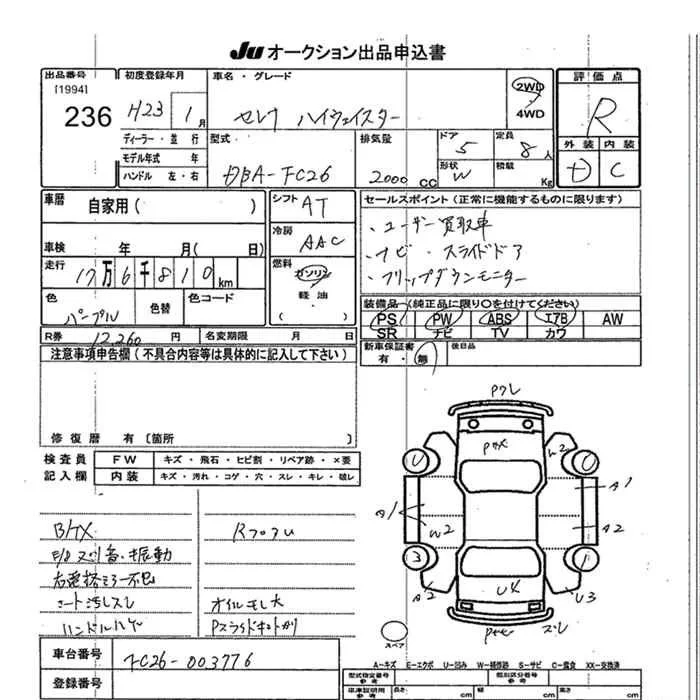 JU オークション出品申込書
出品番号 初度登録年月 車名・グレード 2WD 評価点
[1994]
236 H23 1月 セレナ ハイウェイスター 4WD R
ディーラー・並行 型式 排気量 ドア 定員 外装 内装
モデル年式 年 5 8人
ハンドル 左・右 DBA-FC26 2000cc 形状 W 積載 Kg D C
車暦 自家用( ) シフト AT セールスポイント(正常に機能するものに限ります)
・ユーザー買取車
車検 年 月( 日) 冷房 AAC ・ナビ・スライドドア
走行 17万6千810km 燃料 ガソリン ・フリップダウンモニター
軽油・
( )
色 パープル 色替 色コード 装備品(純正品に限り○を付けてください)
PS PW ABS エアB AW
SR ナビ TV カワ
R券 12,260円 名変期限 月 日
新車保証書 後日品
有・無
注意事項申告欄(不具合内容等は具体的に記入して下さい)
修復暦 有〔箇所 〕
検査員 FW キズ・飛石・ヒビ割・リペア跡・×要
記入欄 内装 キズ・汚れ・コゲ・穴・スレ・キレ・破レ
W2
A1
A1 W2 A2
3 1
A2 U3
シート汚レスレ オイルモレ大
ハンドルハゲ
スペア
車台番号 FC26-003776
A-キズ E-エクボ U-凹み W-補修跡 S-サビ C-腐食 XX-交換済
登録番号
型式指定番号 類別区分番号
参考 参考
車庫証明用 長さ cm 幅 cm 高さ cm
参考